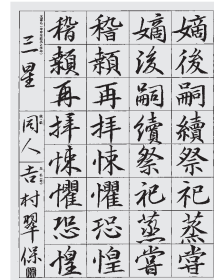 嫡後嗣續祭祀蒸嘗
嫡後嗣續祭祀蒸嘗
稽顙再拜悚懼恐惶
稽顙再拜悚懼恐惶
三星 同人 吉村翠保